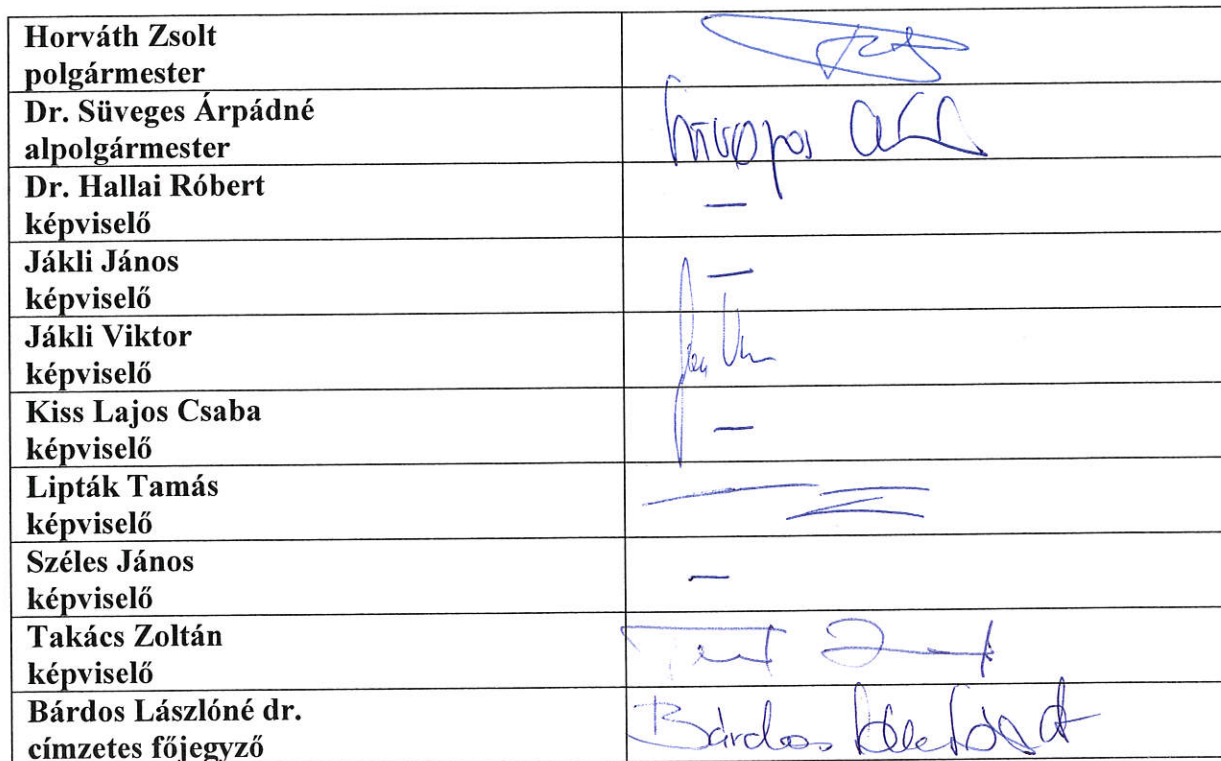 Horváth Zsolt
polgármester
Dr. Süveges Árpádné
alpolgármester
Dr. Hallai Róbert
képviselő
—
Jákli János
képviselő
—
Jákli Viktor
képviselő
Kiss Lajos Csaba
képviselő
—
Lipták Tamás
képviselő
Széles János
képviselő
—
Takács Zoltán
képviselő
Bárdos Lászlóné dr.
címzetes főjegyző
Bárdos